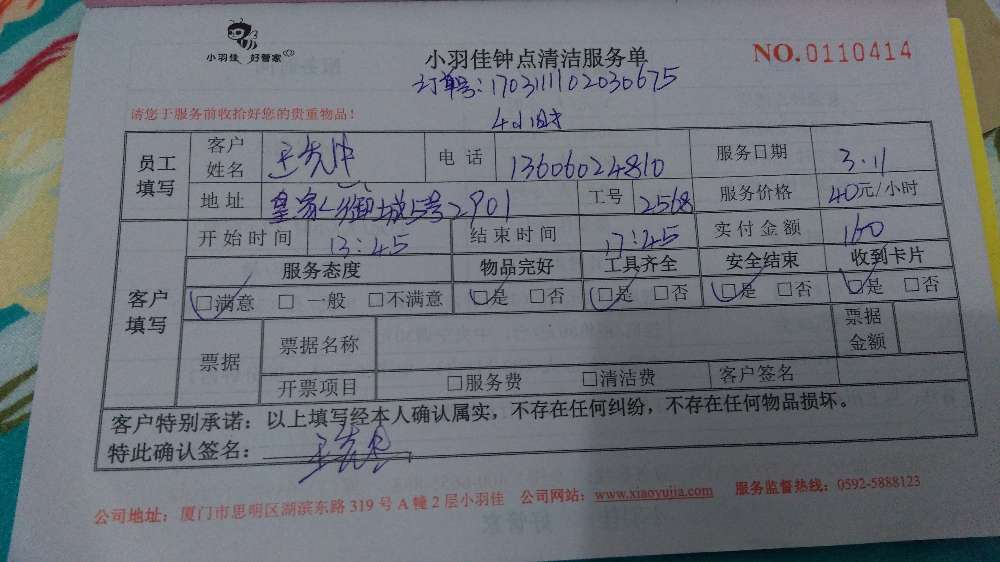 小羽佳 好管家
小羽佳钟点清洁服务单
NO.0110414
订单号:170311102030675
请您于服务前收拾好您的贵重物品!
4小时
员工填写
客户姓名 王先生 电话 13606024810 服务日期 3.11
地址 皇家御城5号2901 工号 2568 服务价格 40元/小时
客户填写
开始时间 13:45 结束时间 17:45 实付金额 160
服务态度 物品完好 工具齐全 安全结束 收到卡片
□满意 □一般 □不满意 □是 □否 □是 □否 □是 □否 □是 □否
票据 票据名称 票据金额
开票项目 □服务费 □清洁费 客户签名
客户特别承诺:以上填写经本人确认属实,不存在任何纠纷,不存在任何物品损坏。
特此确认签名:
公司地址:厦门市思明区湖滨东路319号A幢2层小羽佳 公司网站:www.xiaoyujia.com 服务监督热线:0592-5888123